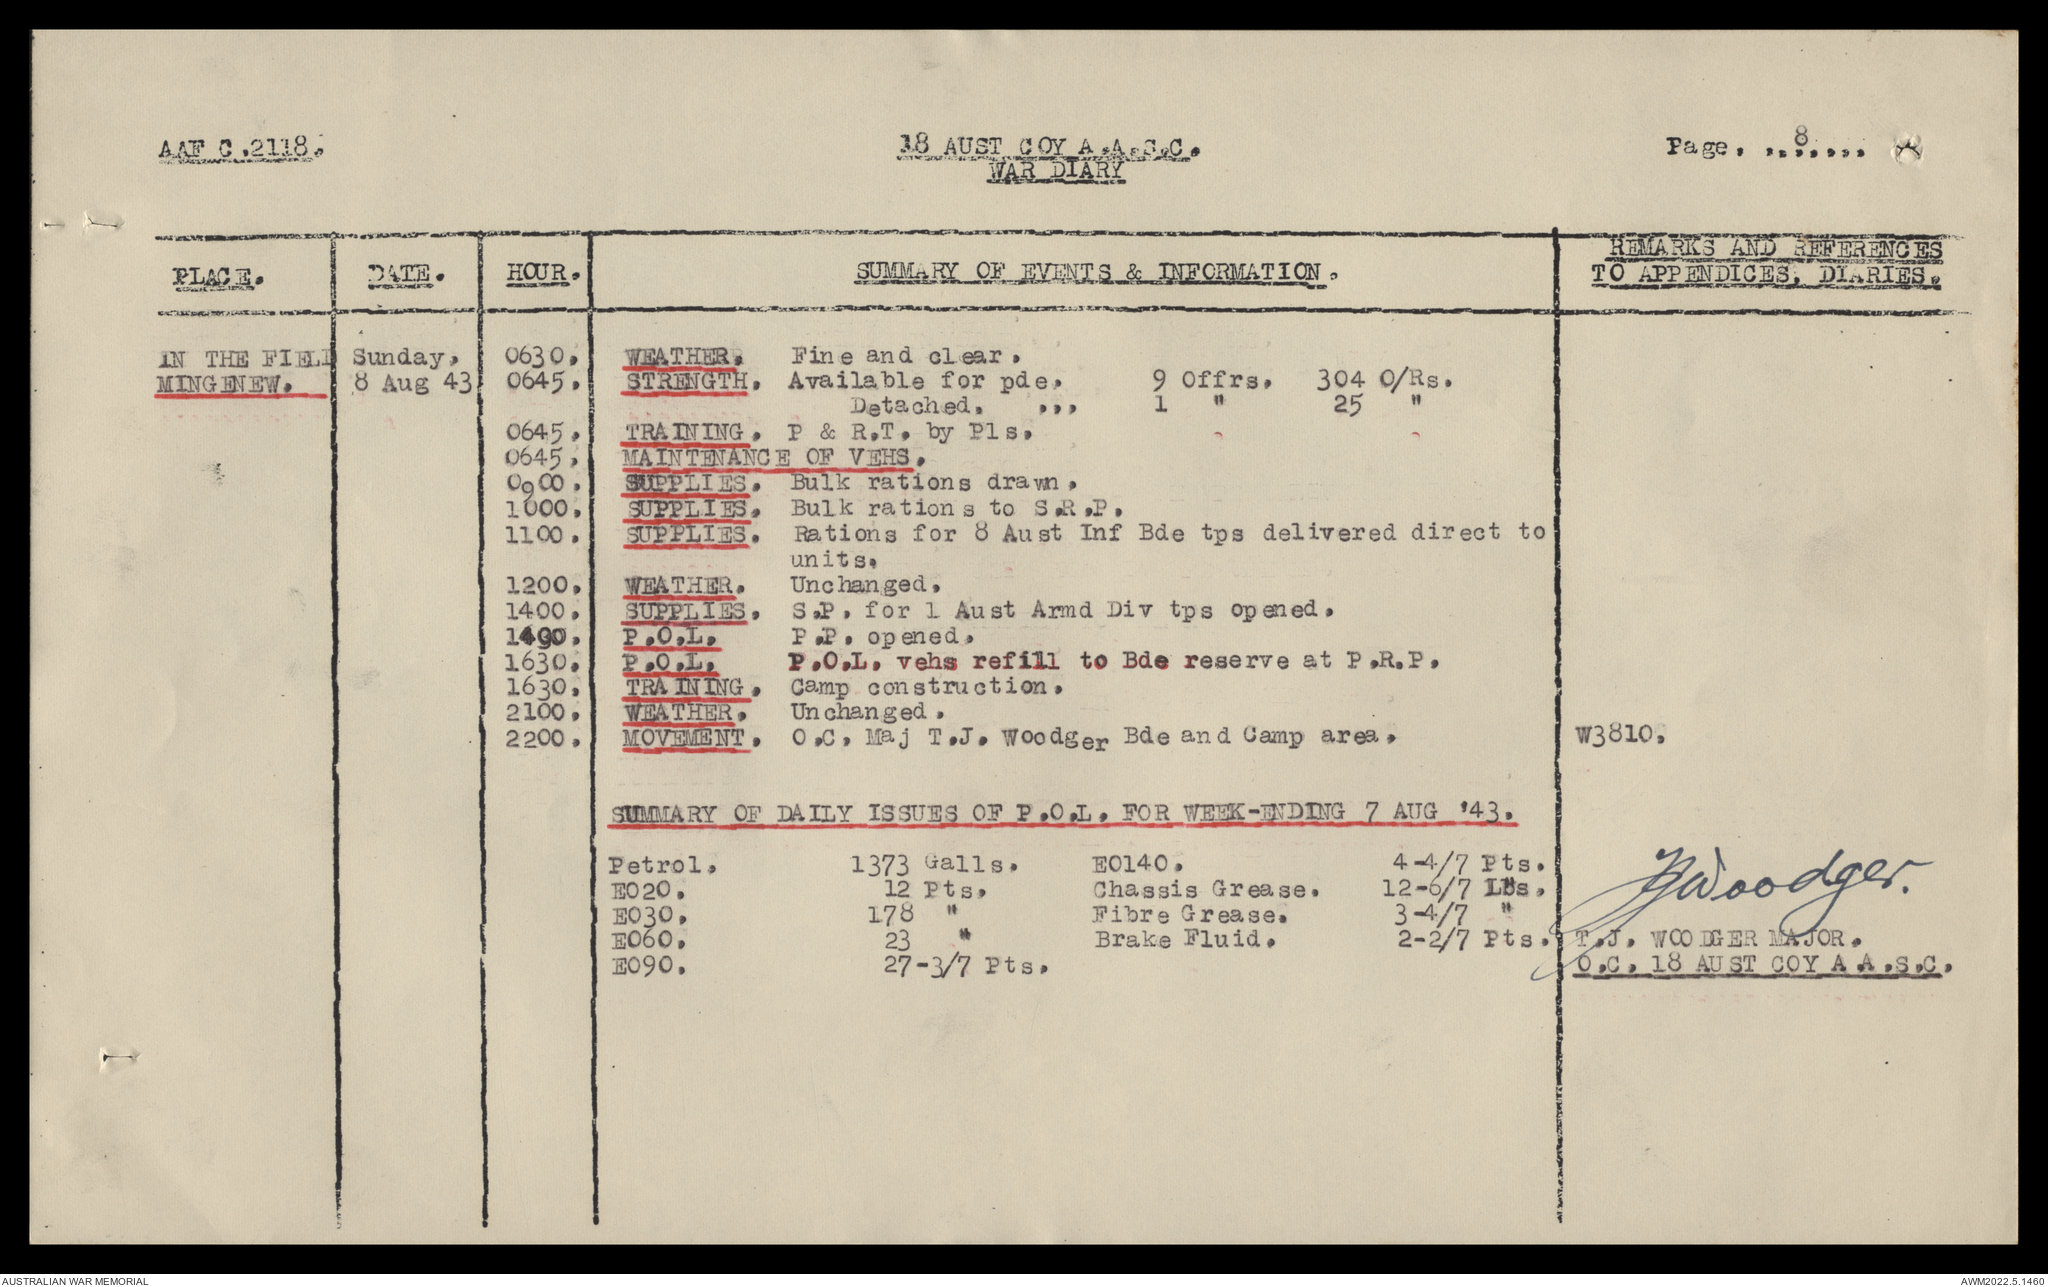 AAF C.2118.
18 AUST COY A.A.S.C.
WAR DIARY
Page. ..8.....
PLACE. DATE. HOUR. SUMMARY OF EVENTS & INFORMATION. REMARKS AND REFERENCES
TO APPENDICES, DIARIES.
IN THE FIELD Sunday, 0630. WEATHER. Fine and clear.
MINGENEW. 8 Aug 43 0645. STRENGTH. Available for pde. 9 Offrs. 304 O/Rs.
Detached. ... 1 " 25 "
0645. TRAINING. P & R.T. by Pls.
0645. MAINTENANCE OF VEHS.
0900. SUPPLIES. Bulk rations drawn.
1000. SUPPLIES. Bulk rations to S.R.P.
1100. SUPPLIES. Rations for 8 Aust Inf Bde tps delivered direct to
units.
1200. WEATHER. Unchanged.
1400. SUPPLIES. S.P. for 1 Aust Armd Div tps opened.
1400. P.O.L. P.P. opened.
1630. P.O.L. P.O.L. vehs refill to Bde reserve at P.R.P.
1630. TRAINING. Camp construction.
2100. WEATHER. Unchanged.
2200. MOVEMENT. O.C. Maj T.J. Woodger Bde and Camp area. W3810.
SUMMARY OF DAILY ISSUES OF P.O.L. FOR WEEK-ENDING 7 AUG '43.
Petrol. 1373 Galls. E0140. 4-4/7 Pts.
E020. 12 Pts. Chassis Grease. 12-6/7 Lbs.
E030. 178 " Fibre Grease. 3-4/7 "
E060. 23 " Brake Fluid. 2-2/7 Pts.
E090. 27-3/7 Pts.
TJWoodger.
T.J. WOODGER MAJOR.
O.C. 18 AUST COY A.A.S.C.
AUSTRALIAN WAR MEMORIAL
AWM2022.5.1460